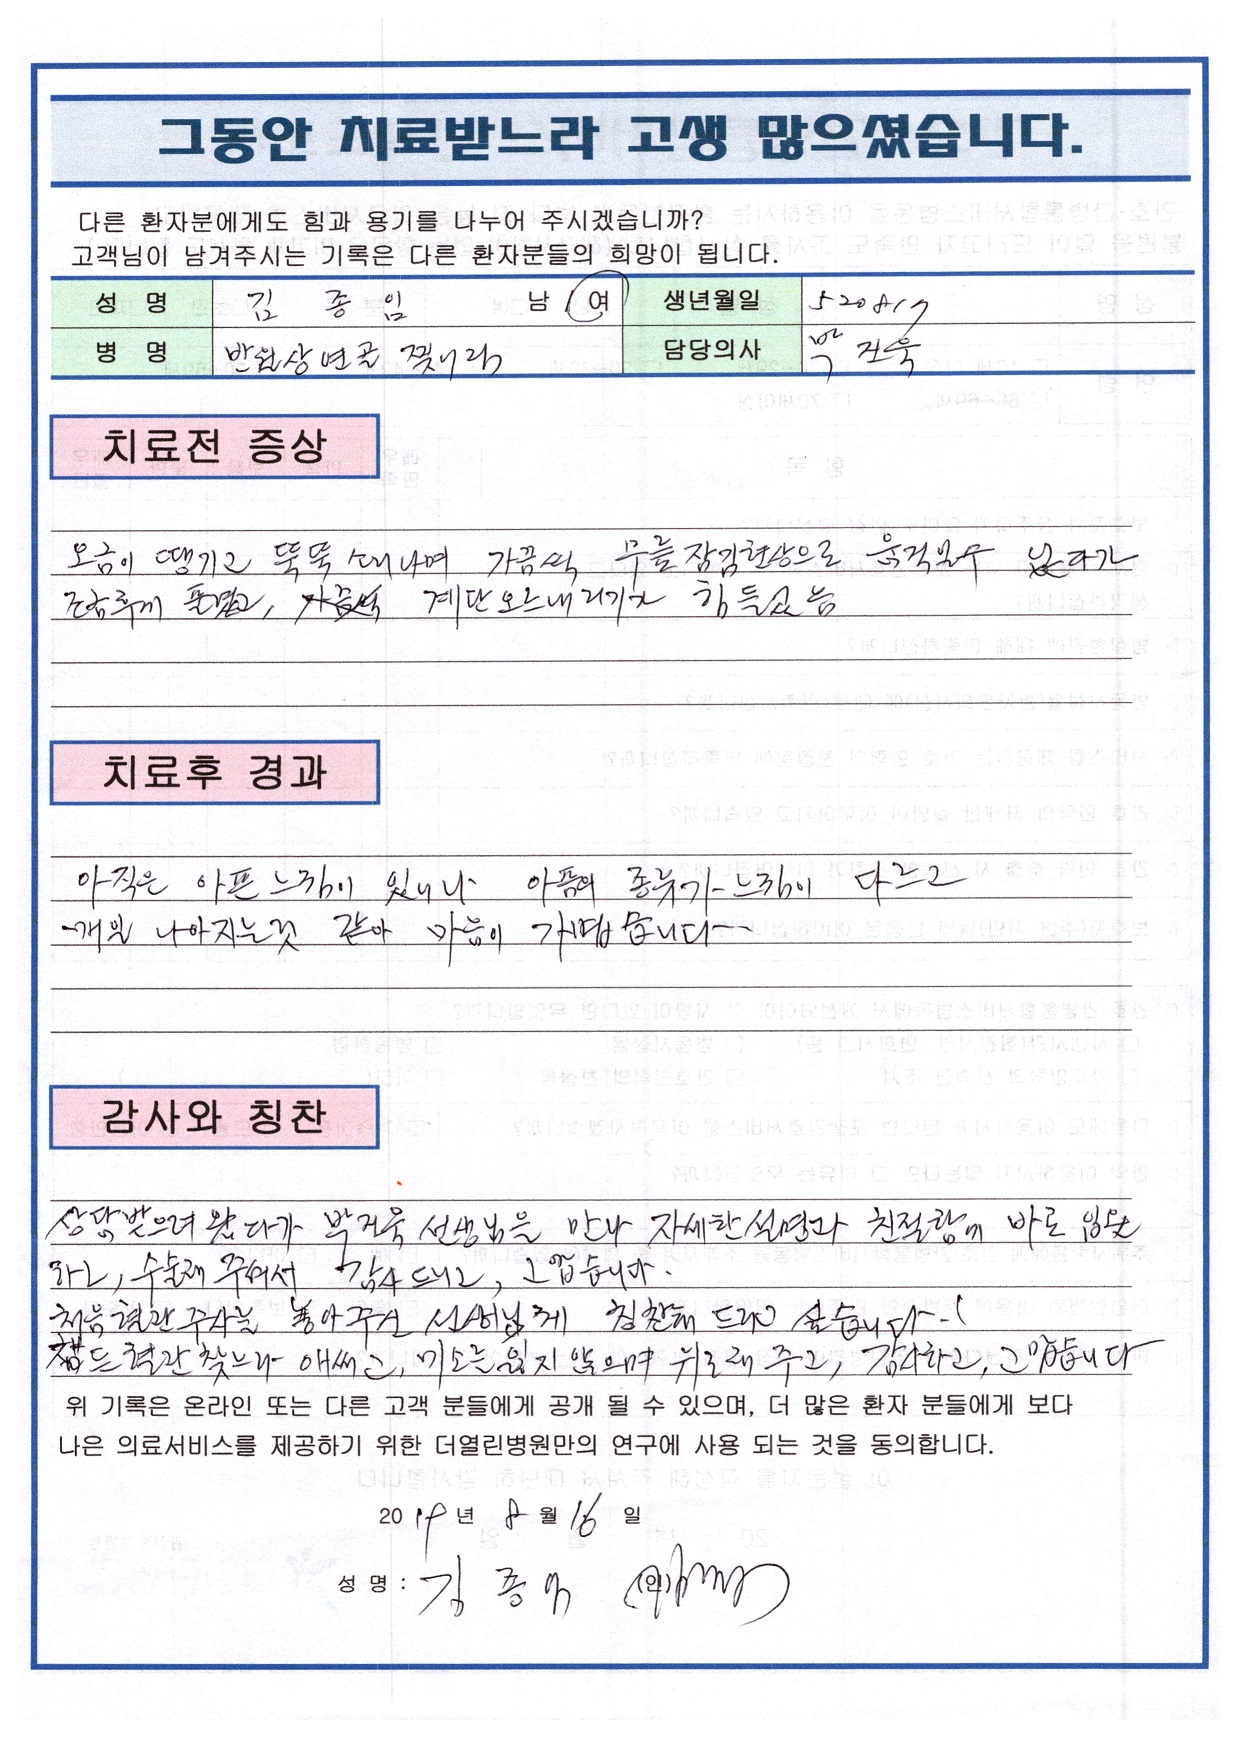 그동안 치료받느라 고생 많으셨습니다.
다른 환자분에게도 힘과 용기를 나누어 주시겠습니까?
고객님이 남겨주시는 기록은 다른 환자분들의 희망이 됩니다.
성 명 김 종 임 남 여 생년월일 520817
병 명 반월상 연골 찢어짐 담당의사 박 진욱
치료전 증상
오금이 땡기고 뚝뚝 소리나며 가끔씩 무릎 잠김현상으로 움직일수 없다가
조금후에 풀렸고, 가끔씩 계단 오르내리기가 힘들었음
치료후 경과
아직은 아픈 느낌이 있으나 아픔의 종류가 느낌이 다르고
매일 나아지는것 같아 마음이 가볍습니다
감사와 칭찬
상담받으러 왔다가 선생님을 만나 자세한 설명과 친절함에 바로 입원
하고, 수술해 주셔서 감사드리고, 고맙습니다.
처음 혈관주사를 놓아주신 선생님께 칭찬해 드리고 싶습니다
힘든 혈관 찾느라 애쓰고, 미소를 잃지 않으며 위로해 주고, 감사하고, 고맙습니다
위 기록은 온라인 또는 다른 고객 분들에게 공개 될 수 있으며, 더 많은 환자 분들에게 보다
나은 의료서비스를 제공하기 위한 더열린병원만의 연구에 사용 되는 것을 동의합니다.
2019년 8 월 16 일
성 명 : 김 종 임 (인)